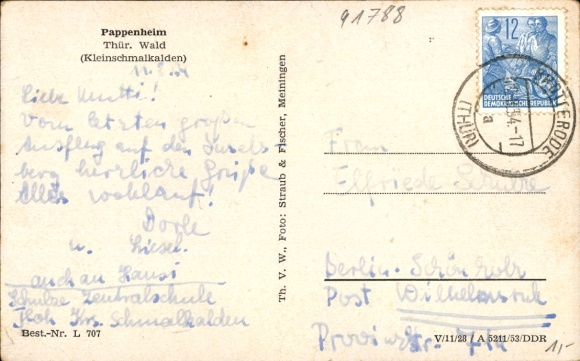 91788
Pappenheim
Thür. Wald
(Kleinschmalkalden)
11.8.54
Liebe Mutti!
Vom letzten großen
Ausflug auf den Insels
berg herzliche Grüße
Alles wohlauf!
Dorle
u. Liesel.
auch an Hansi
Schulze Zentralschule
Krs. Schmalkalden
Best.-Nr. L 707
Th. V. W., Foto: Straub & Fischer, Meiningen
12
DEUTSCHE
DEMOKRATISCHE REPUBLIK
BROTTERODE
54-17
a
(THÜR)
Frau
Elfriede Schulze
Berlin-Schönholz
Post Wilhelmsruh
V/11/28 / A 5211/53/DDR
1,-